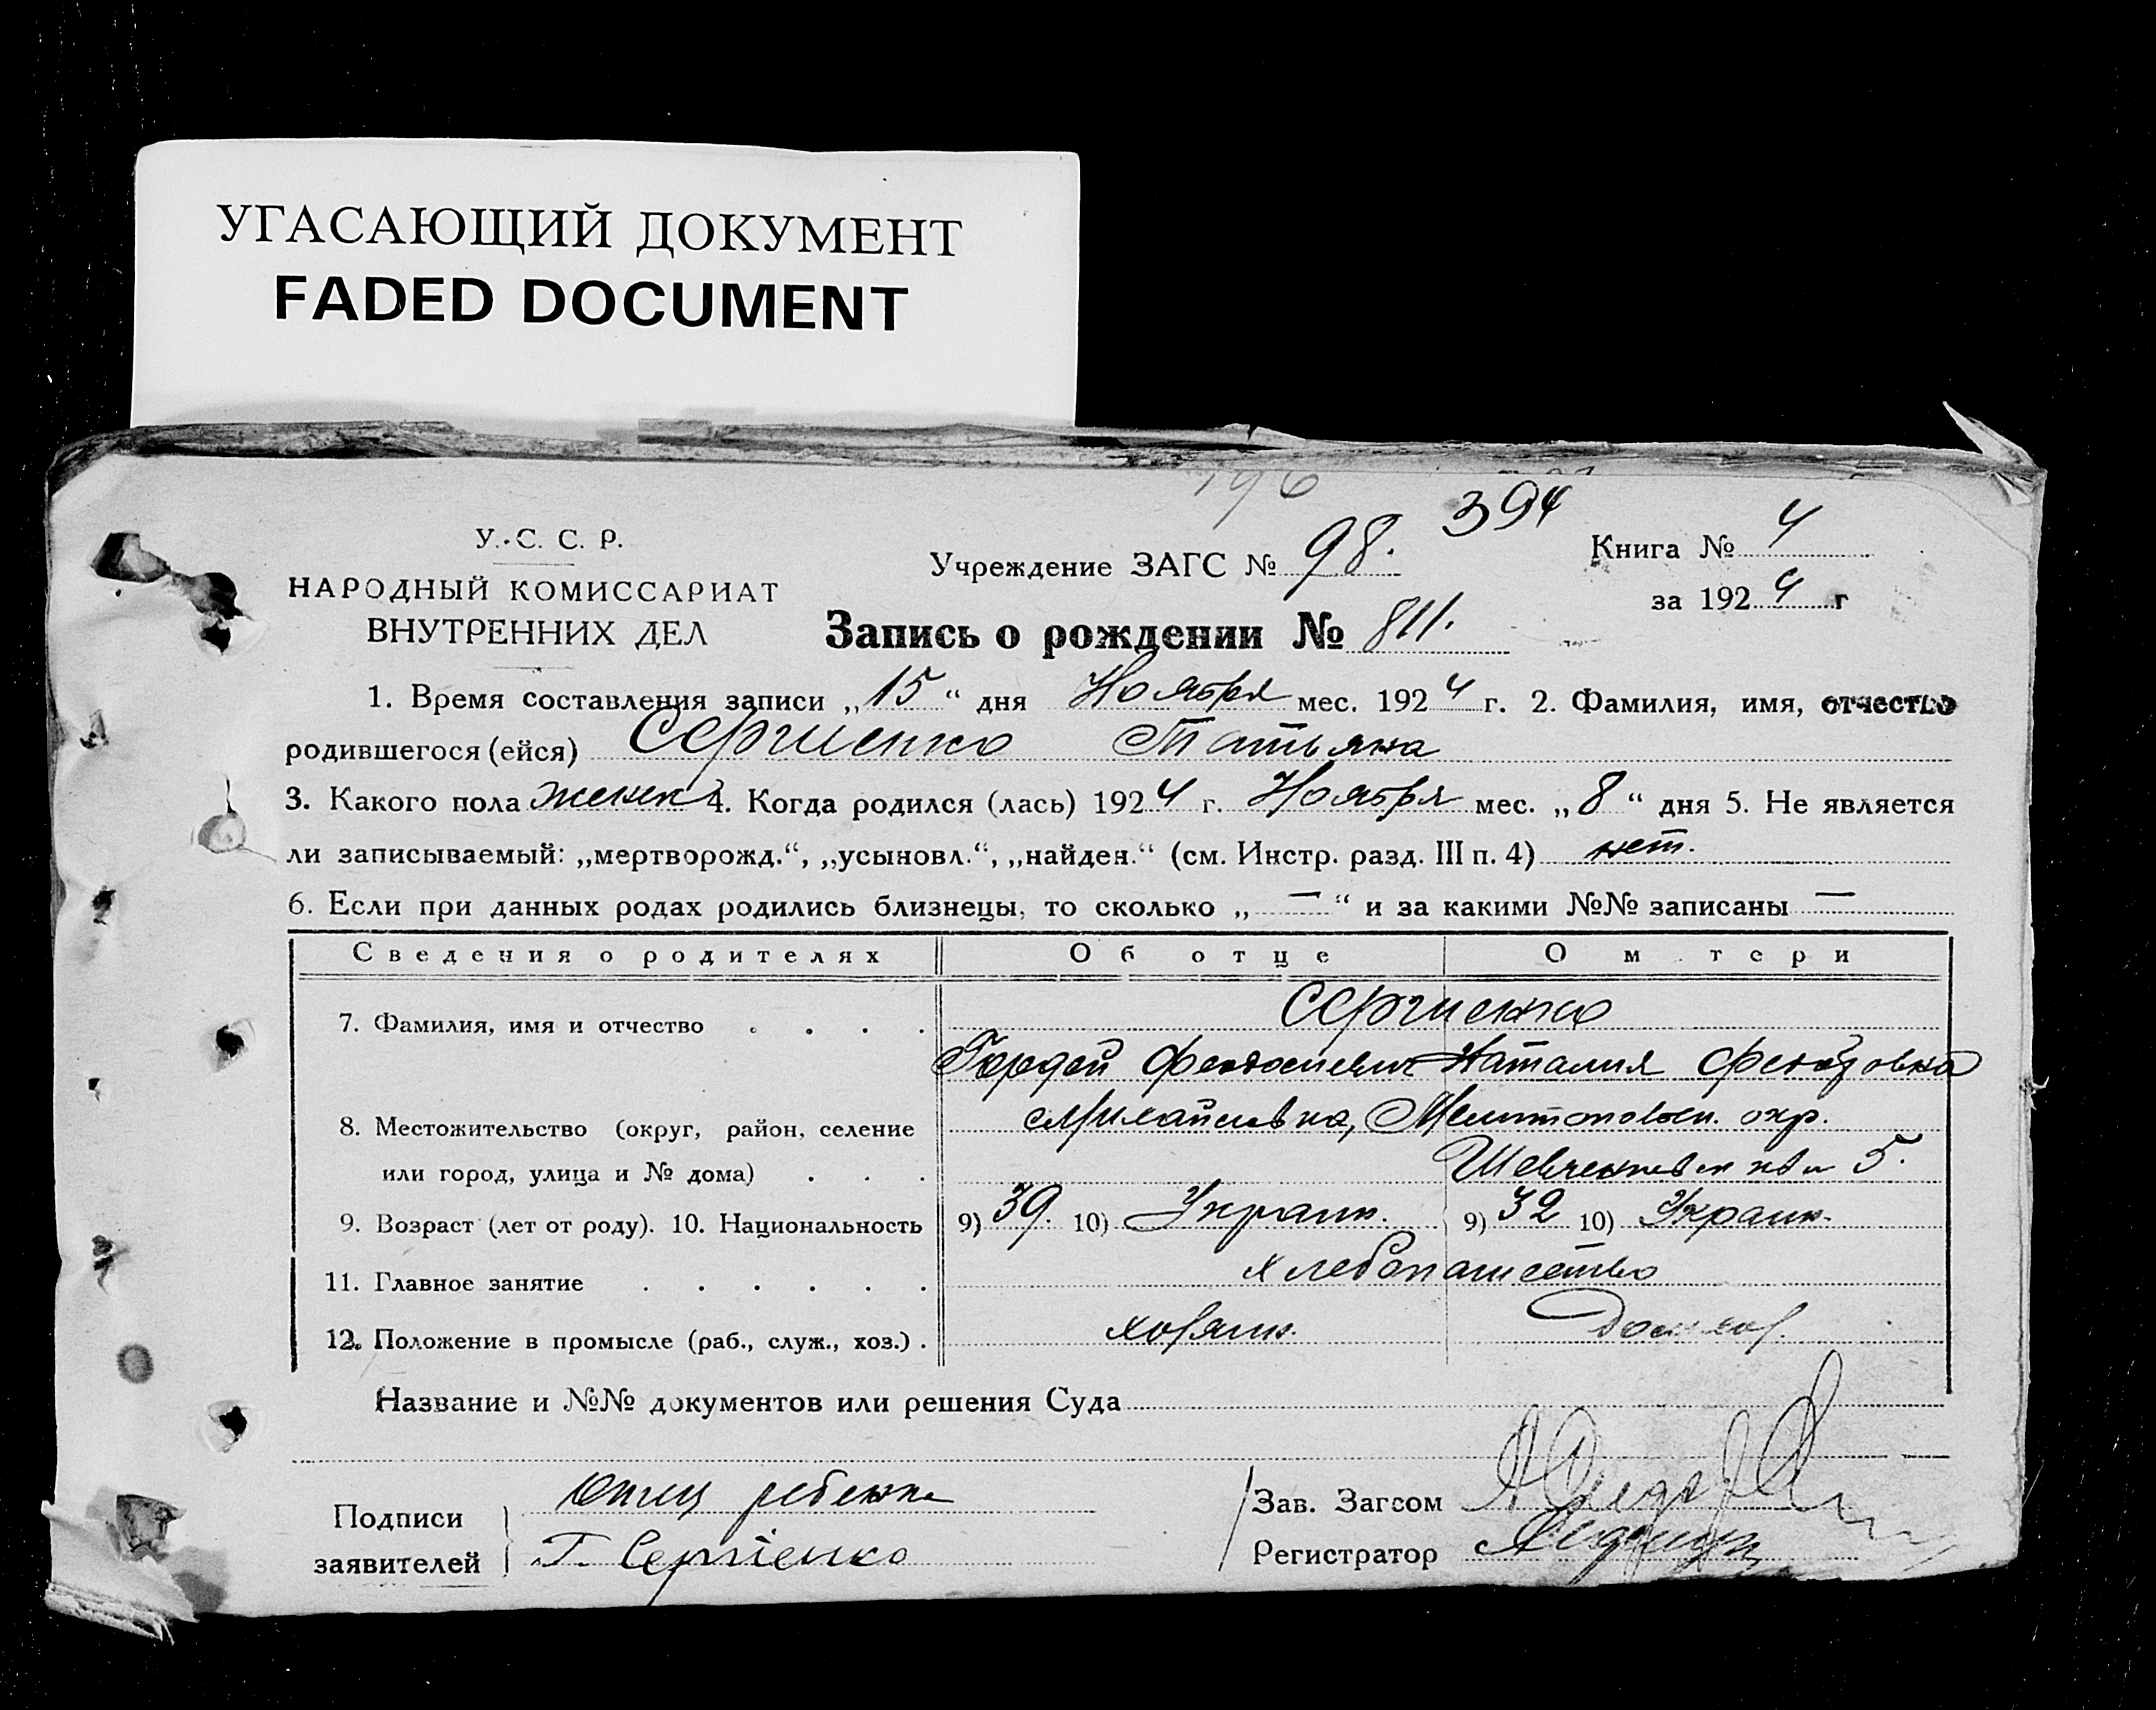 УГАСАЮЩИЙ ДОКУМЕНТ
FADED DOCUMENT
196
394
У. С. С. Р.
НАРОДНЫЙ КОМИССАРИАТ
ВНУТРЕННИХ ДЕЛ
Учреждение ЗАГС № 98.
Книга № 4
за 1924 г
Запись о рождении № 811.
1. Время составления записи „15“ дня Ноября мес. 1924 г. 2. Фамилия, имя, отчество
родившегося (ейся) Сергиенко Татьяна
3. Какого пола женск 4. Когда родился (лась) 1924 г. Ноября мес. „8“ дня 5. Не является
ли записываемый: „мертворожд.“, „усыновл.“, „найден.“ (см. Инстр. разд. III п. 4) нет.
6. Если при данных родах родились близнецы, то сколько „—“ и за какими №№ записаны —
Сведения о родителях Об отце О м тери
7. Фамилия, имя и отчество . . . . Сергиенко
Гордей Феодосиевич Наталия Федоровна
8. Местожительство (округ, район, селение Михайловка, Мелитопольск. окр.
или город, улица и № дома) . . . 5.
9. Возраст (лет от роду). 10. Национальность 9) 39. 10) Украин. 9) 32 10) Украин.
11. Главное занятие . . . . . . хлебопашество
12. Положение в промысле (раб., служ., хоз.) . хозяин. Домхоз.
Название и №№ документов или решения Суда
Подписи
заявителей
Отец ребенка
Г. Сергіенко
Зав. Загсом
Регистратор